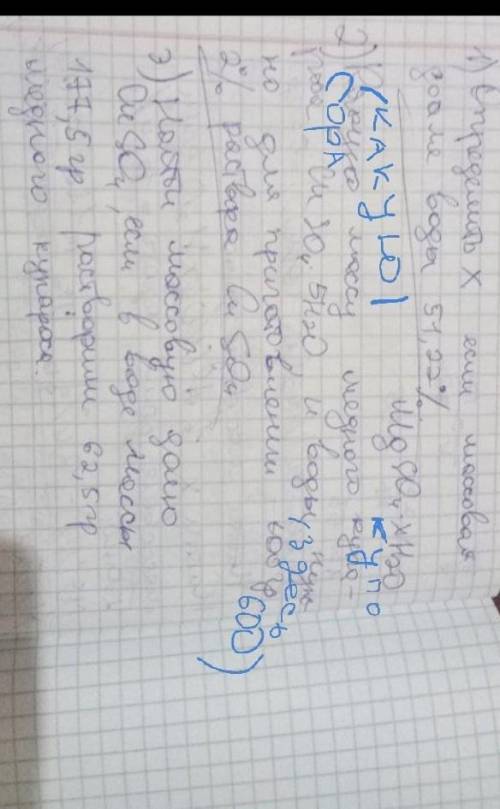 1) Определить X если массовая
доля воды 51,22%
MgSO4·xH2O
2) Какую массу медного купо-
(какую) купо
роса CuSO4·5H2O и воды нуж
сора (здесь
но для приготовления 600 гр
600)
2% раствора CuSO4
3) Найти массовую долю
CuSO4, если в воде массы
177,5 гр растворили 62,5 гр
медного купороса.